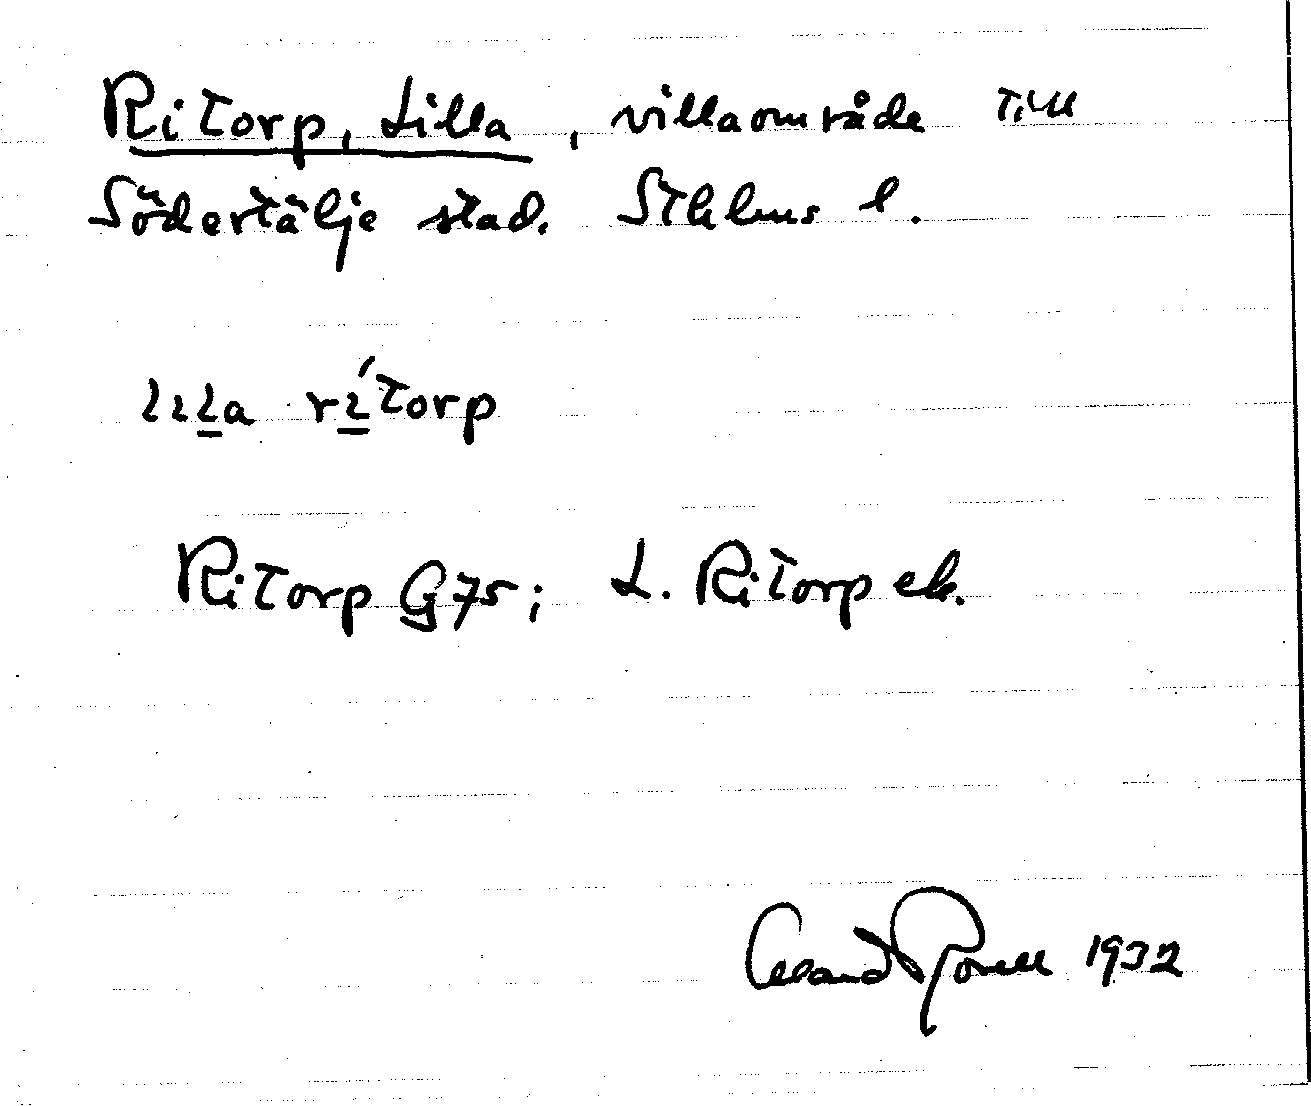 Ritorp, Lilla, villaområde till
Södertälje stad. Sthlms l.
lɩla rɩ́torp
Ritorp G 75; L. Ritorp ek.
1932